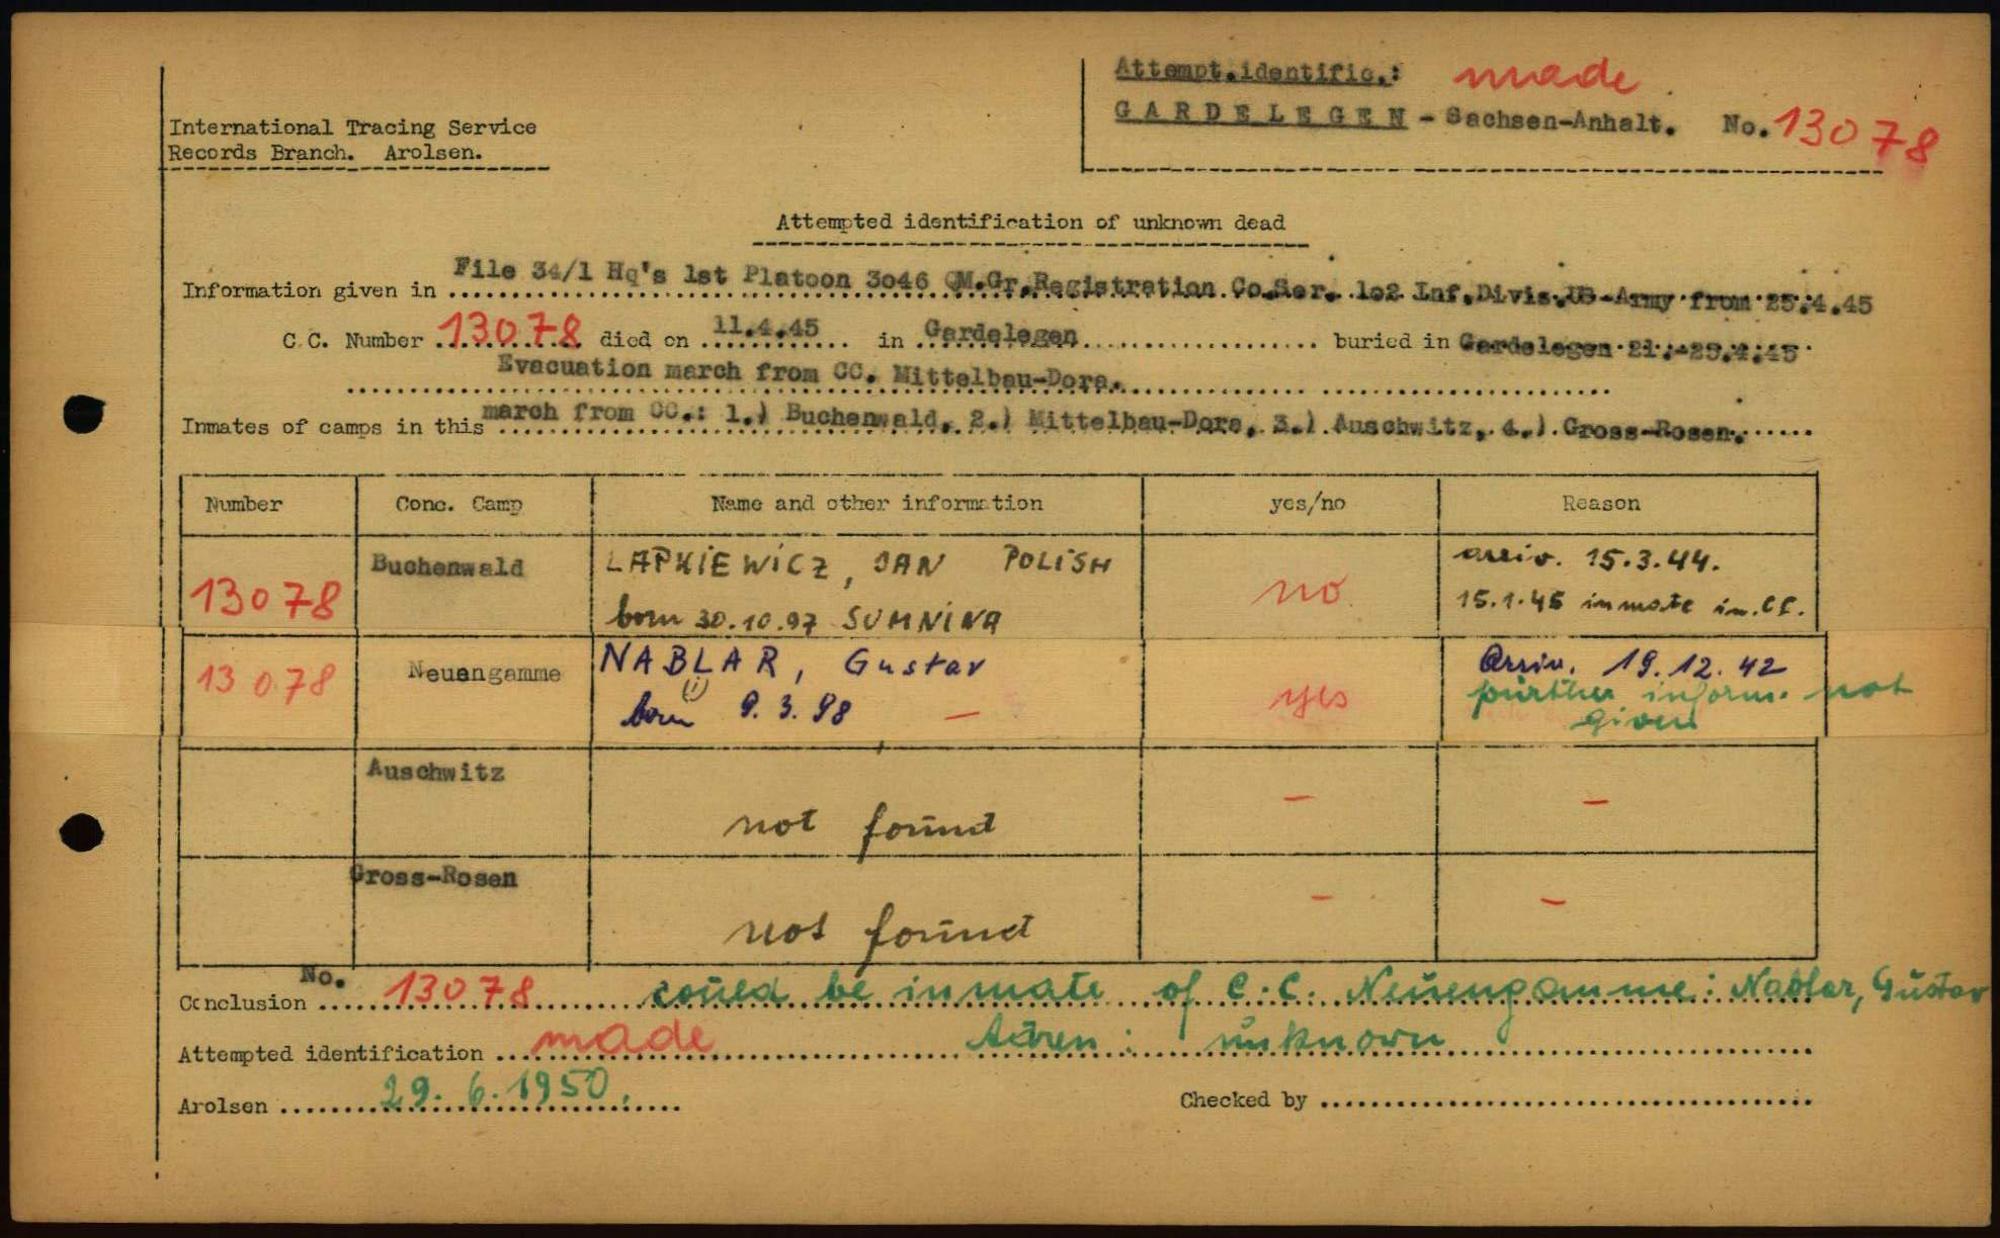 Attempt.identific.: made
GARDELEGEN - Sachsen-Anhalt. No. 13078
International Tracing Service
Records Branch. Arolsen.
Attempted identification of unknown dead
Information given in File 34/1 Hq's 1st Platoon 3o46 QM.Gr.Registration Co.Ser. 1o2 Inf.Divis.US-Army from 25.4.45
C.C. Number 13078 died on 11.4.45 in Gardelegen buried in Gardelegen 21.-25.4.45
Evacuation march from CC. Mittelbau-Dora.
Inmates of camps in this march from CC.: 1.) Buchenwald, 2.) Mittelbau-Dora, 3.) Auschwitz, 4.) Gross-Rosen.
Number Conc. Camp Name and other information yes/no Reason
13078 Buchenwald LAPKIEWICZ, JAN POLISH no arriv. 15.3.44.
born 30.10.97 SUMNINA 15.1.45 inmate in CC.
13078 Neuengamme NABLAR, Gustav yes Arriv. 19.12.42
(i)
born 9.3.98 — further inform. not
given
Auschwitz
not found — —
Gross-Rosen
not found — —
Conclusion No. 13078 could be inmate of C.C. Neuengamme: Nablar, Gustav
Attempted identification made unknown
Arolsen 29.6.1950. Checked by